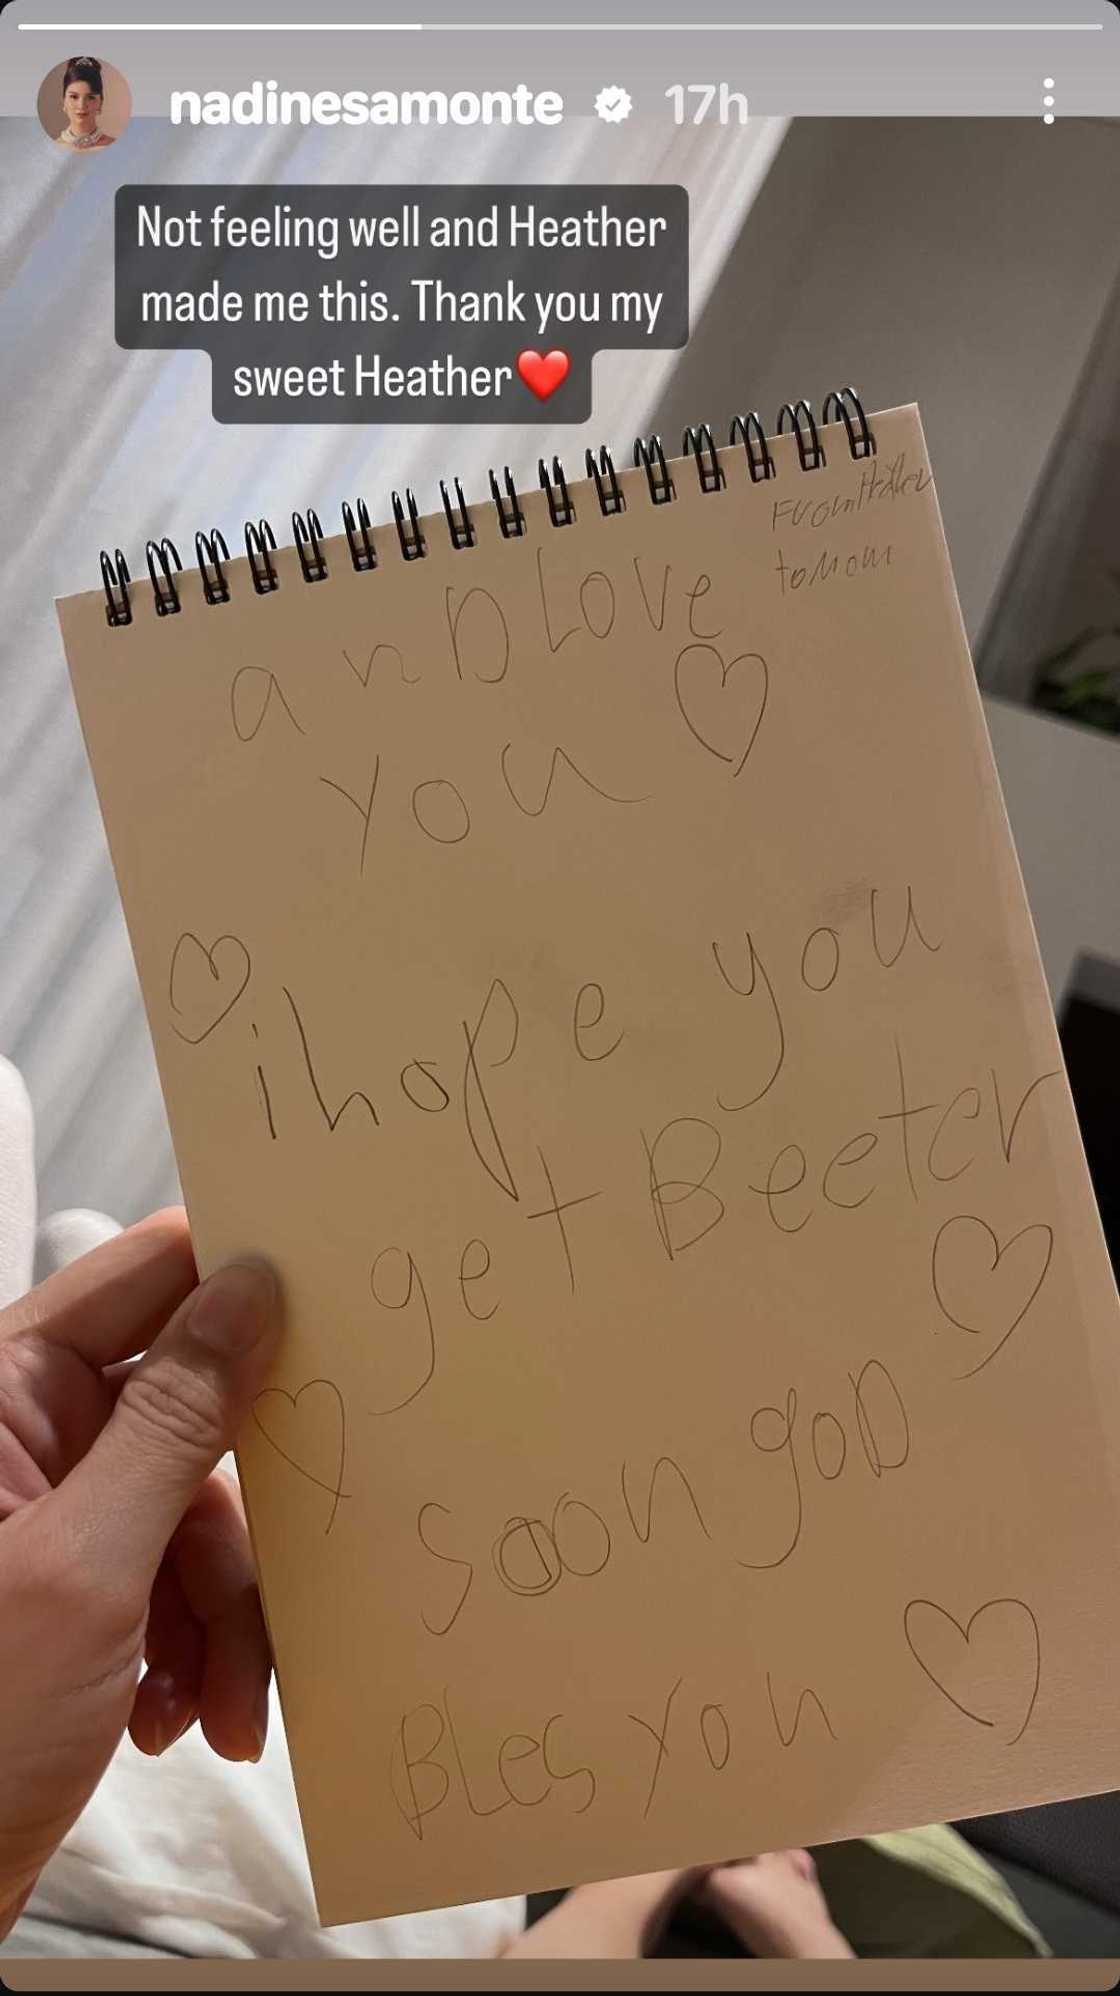 nadinesamonte 17h
Not feeling well and Heather
made me this. Thank you my
sweet Heather❤️
From Heather
to Mom
anD Love
you
i hope you
get Beeter
soon goD
Bles yoh